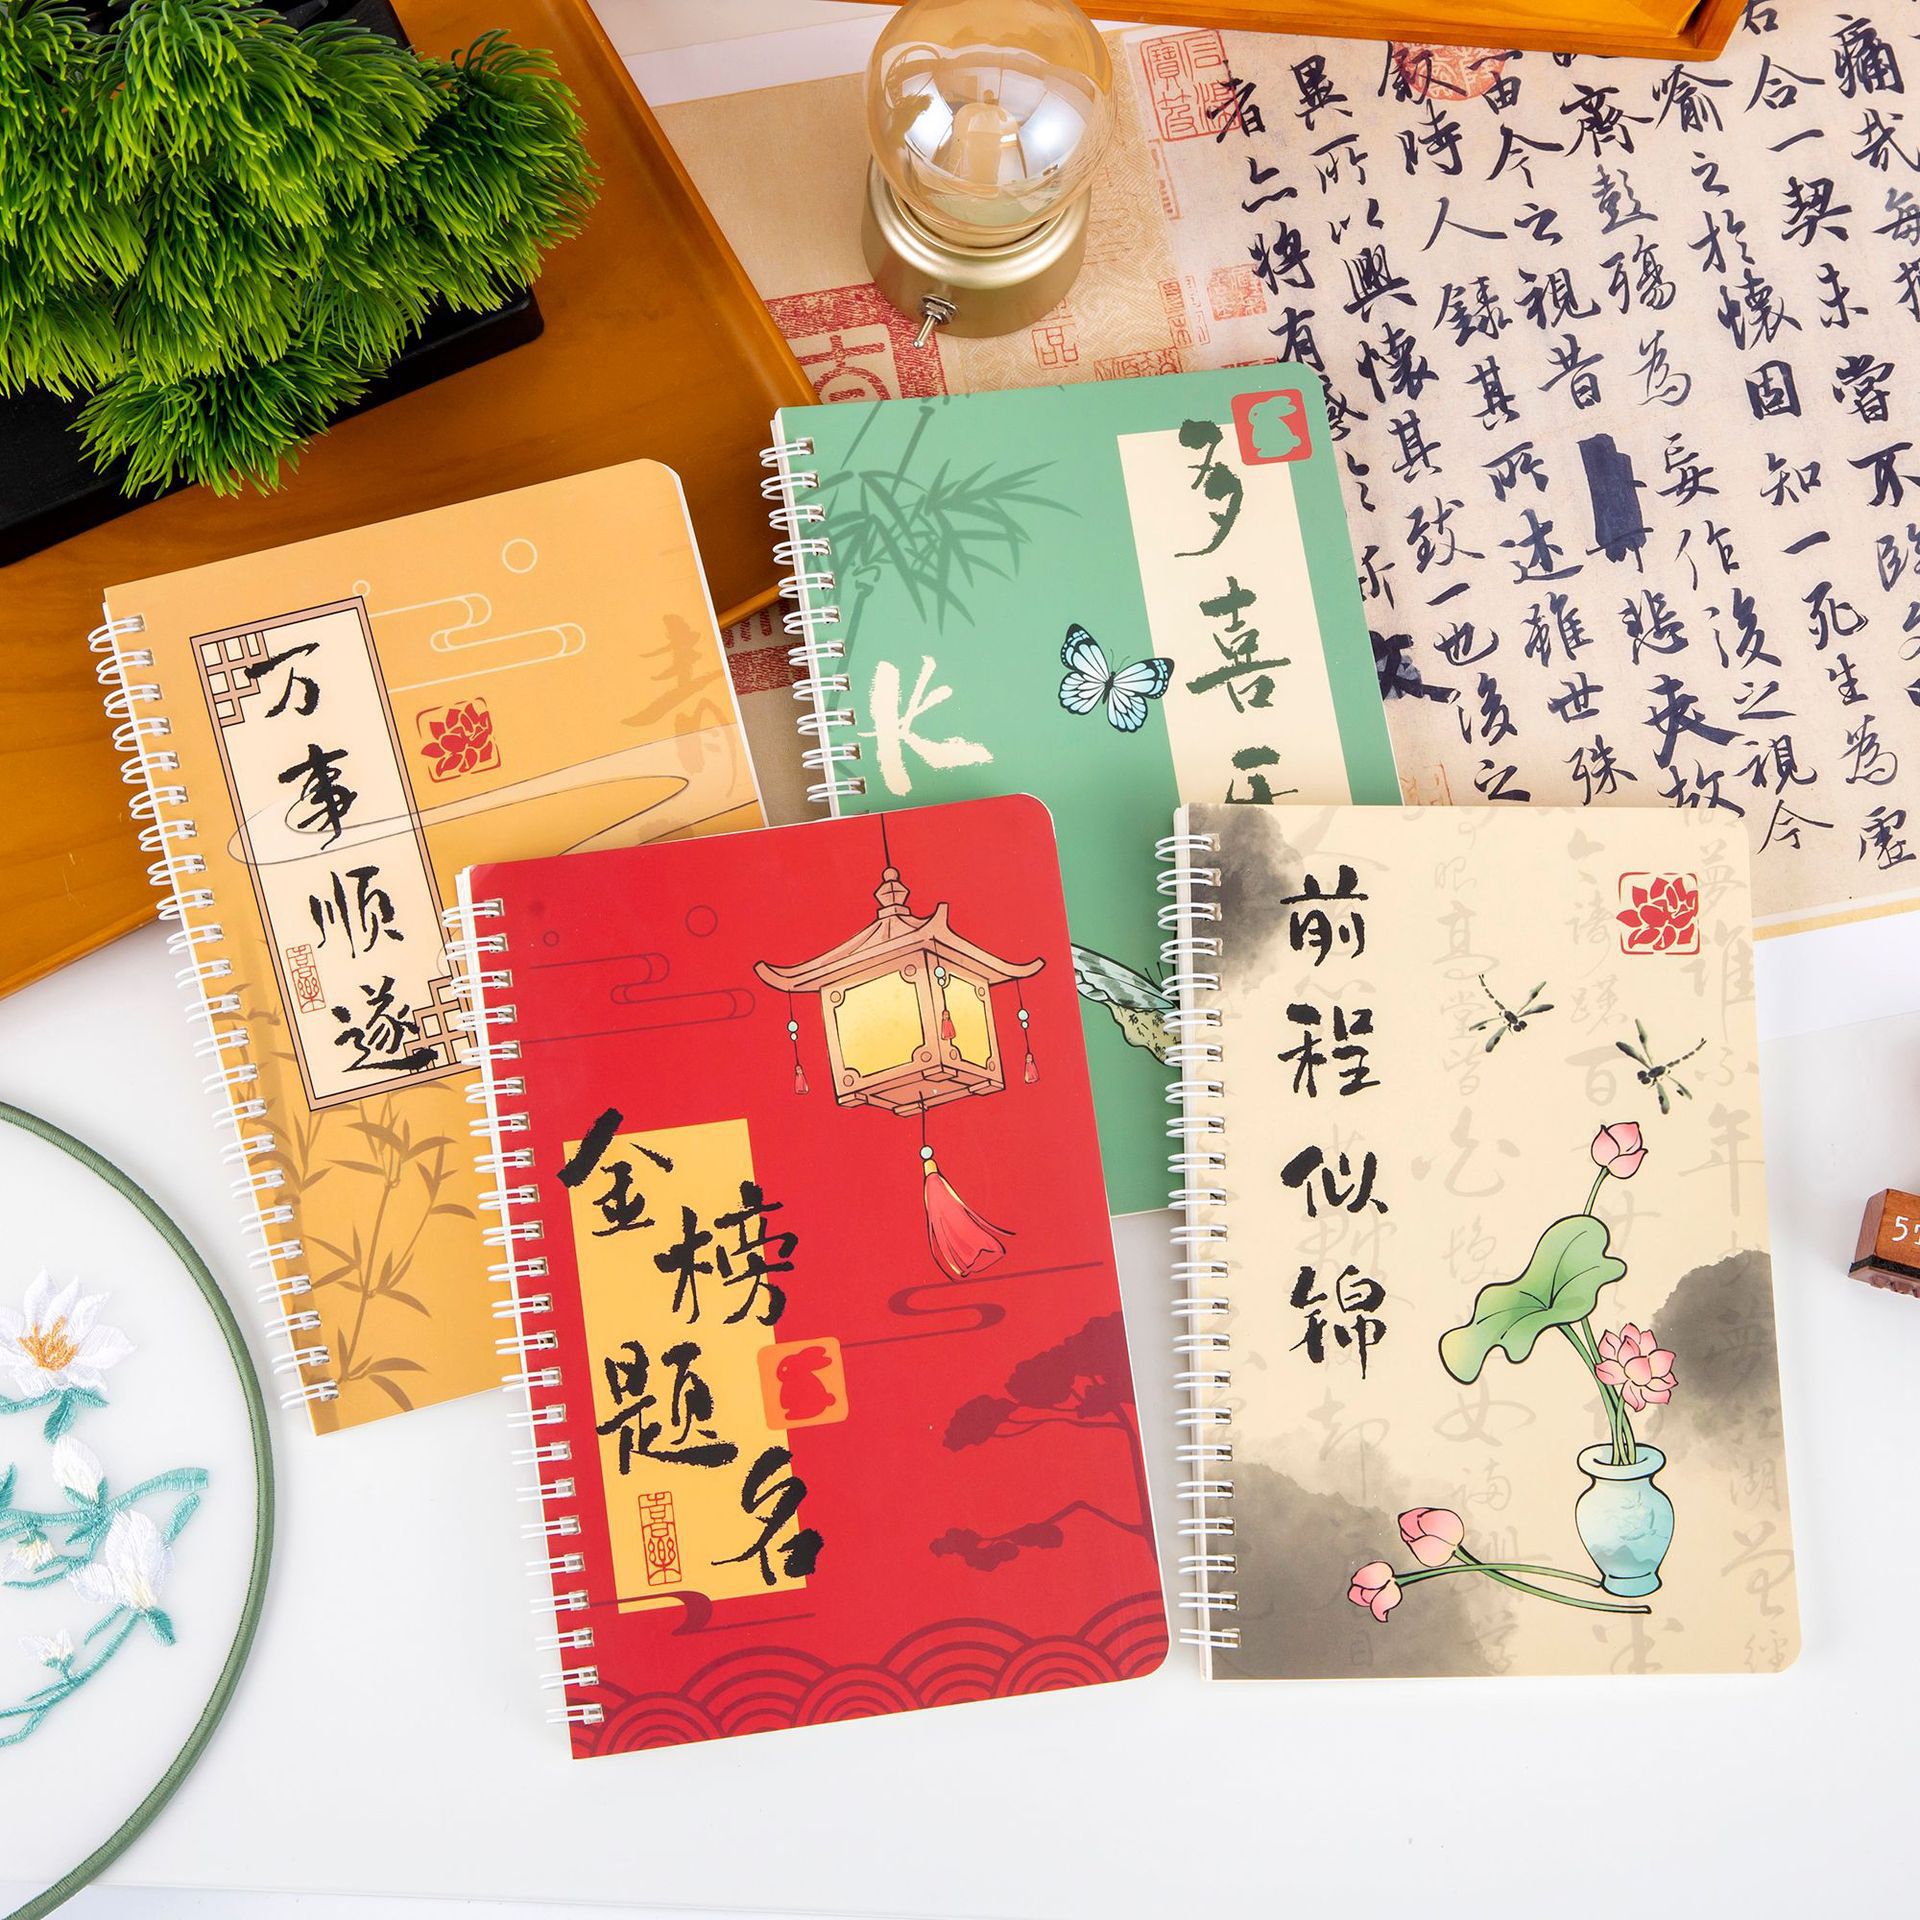 万事顺遂
喜樂
青
多喜
长
金榜题名
喜樂
前程似锦
痛哉每
合一契未嘗不臨
喻之於懷固知一死生為虛
齊彭殤為妄作後之視今
由今之視昔悲夫故
敘時人錄其所述雖世殊
異所以興懷其致一也後之
者亦將有感於斯